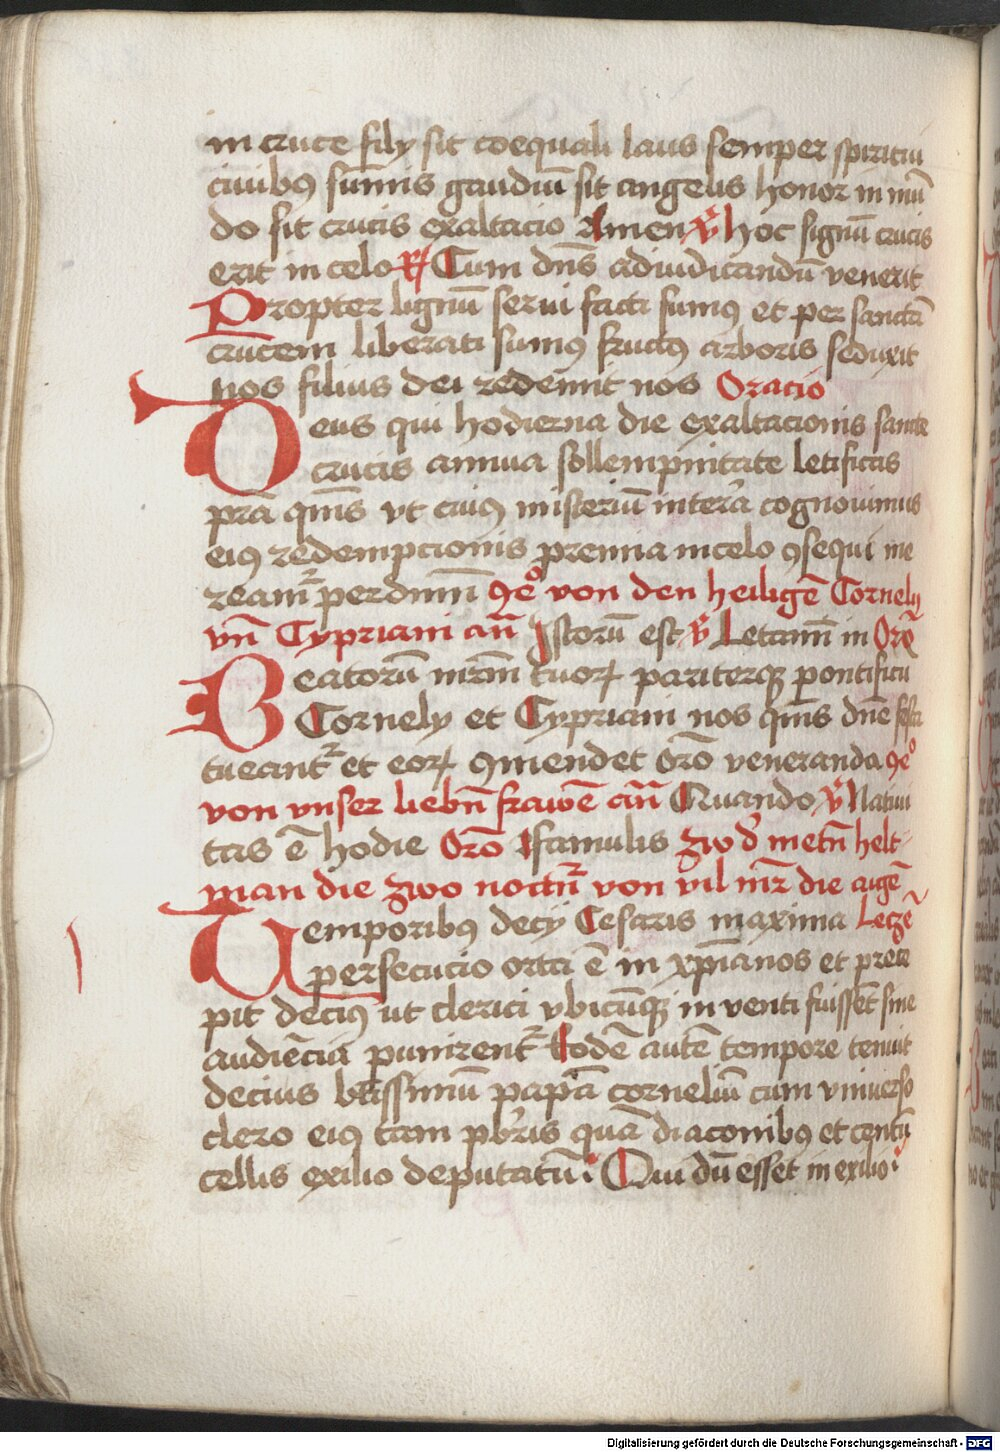 in cruce filÿ sit coequali laus semper spiritui
ciuibꝯ sum̄is gaudiū sit angelis honor in mū
do sit crucis exaltacio Amen ℣ hoc signū crucis
erit in celo ℟ Cum dn̄s ad iudicandū venerit
Propter lignū serui facti sumꝯ et per sanctā
crucem liberati sumꝯ fructꝯ arboris seduxit
nos filius dei redemit nos Oracio
Deus qui hodierna die exaltacionis sancte
crucis annua sollempnitate letificas
pr̄a qm̄s vt cuiꝯ misteriū in terra cognouimus
eiꝯ redempcionis premia in celo ꝯsequi me
ream̄ per dnm̄ ꝯeͦ von den heiligē Cornely
vn̄ Cypriani an̄ Istorū est ℣ Letamī in Orō
Beatorū mr̄m tuoꝝ pariterqꝫ pontificū
Cornely et Cypriani nos qm̄s dn̄e festa
tueant᷑ et eoꝝ ꝯmendet orō veneranda ꝯeͦ
von vnser liebn̄ frawē an̄ Quando ℣ Natiui
tas ē hodie Orō famulis zw d᷑ metn̄ helt
man die zwo noctn̄ von vil mr̄ die aigē
Temporibꝯ decÿ Cesaris maxima Leczē
persecucio orta ē in xp̄ianos et prece
pit deciꝯ ut clerici vbicūqꝫ in venti fuissēt sine
audiēcia punirent᷑ Eodē autē tempore tenuit
decius bt̄issimū papā corneliū cum vniuerso
clero eiꝯ tam pb̄ris quā diaconibꝯ et centū
cellis exilio deputatū. Qui dū esset in exilio.
Digitalisierung gefördert durch die Deutsche Forschungsgemeinschaft - DFG